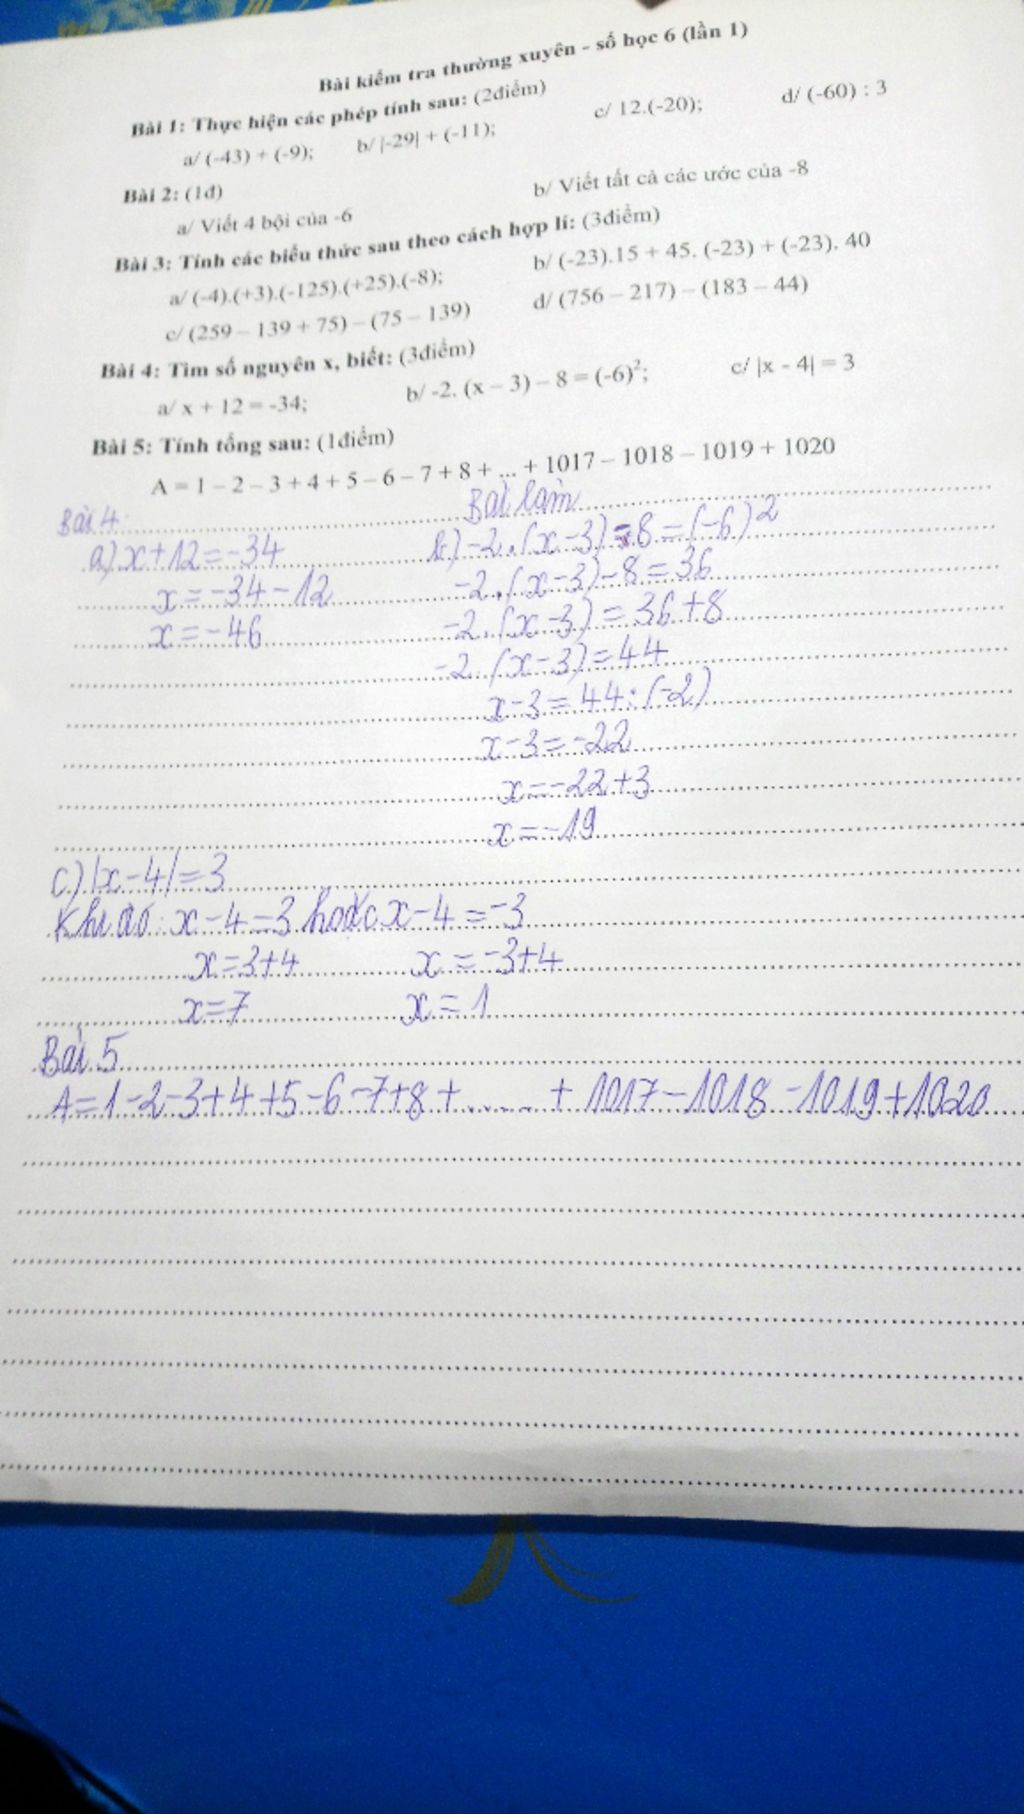 Bài kiểm tra thường xuyên - số học 6 (lần 1)
Bài 1: Thực hiện các phép tính sau: (2điểm)
a/ (-43) + (-9); b/ |-29| + (-11); c/ 12.(-20); d/ (-60) : 3
Bài 2: (1đ)
a/ Viết 4 bội của -6 b/ Viết tất cả các ước của -8
Bài 3: Tính các biểu thức sau theo cách hợp lí: (3điểm)
a/ (-4).(+3).(-125).(+25).(-8); b/ (-23).15 + 45. (-23) + (-23). 40
c/ (259 – 139 + 75) – (75 – 139) d/ (756 – 217) – (183 – 44)
Bài 4: Tìm số nguyên x, biết: (3điểm)
a/ x + 12 = -34; b/ -2. (x – 3) – 8 = (-6)²; c/ |x - 4| = 3
Bài 5: Tính tổng sau: (1điểm)
A = 1 – 2 – 3 + 4 + 5 – 6 – 7 + 8 + ... + 1017 – 1018 – 1019 + 1020
Bài làm
Bài 4:
a) x+12=-34 b) -2.(x-3)-8=(-6)²
x=-34-12 -2.(x-3)-8=36
x=-46 -2.(x-3)=36+8
-2.(x-3)=44
x-3=44:(-2)
x-3=-22
x=-22+3
x=-19
c) |x-4|=3
Khi đó: x-4=3 hoặc x-4=-3
x=3+4 x=-3+4
x=7 x=1
Bài 5
A=1-2-3+4+5-6-7+8+......+1017-1018-1019+1020